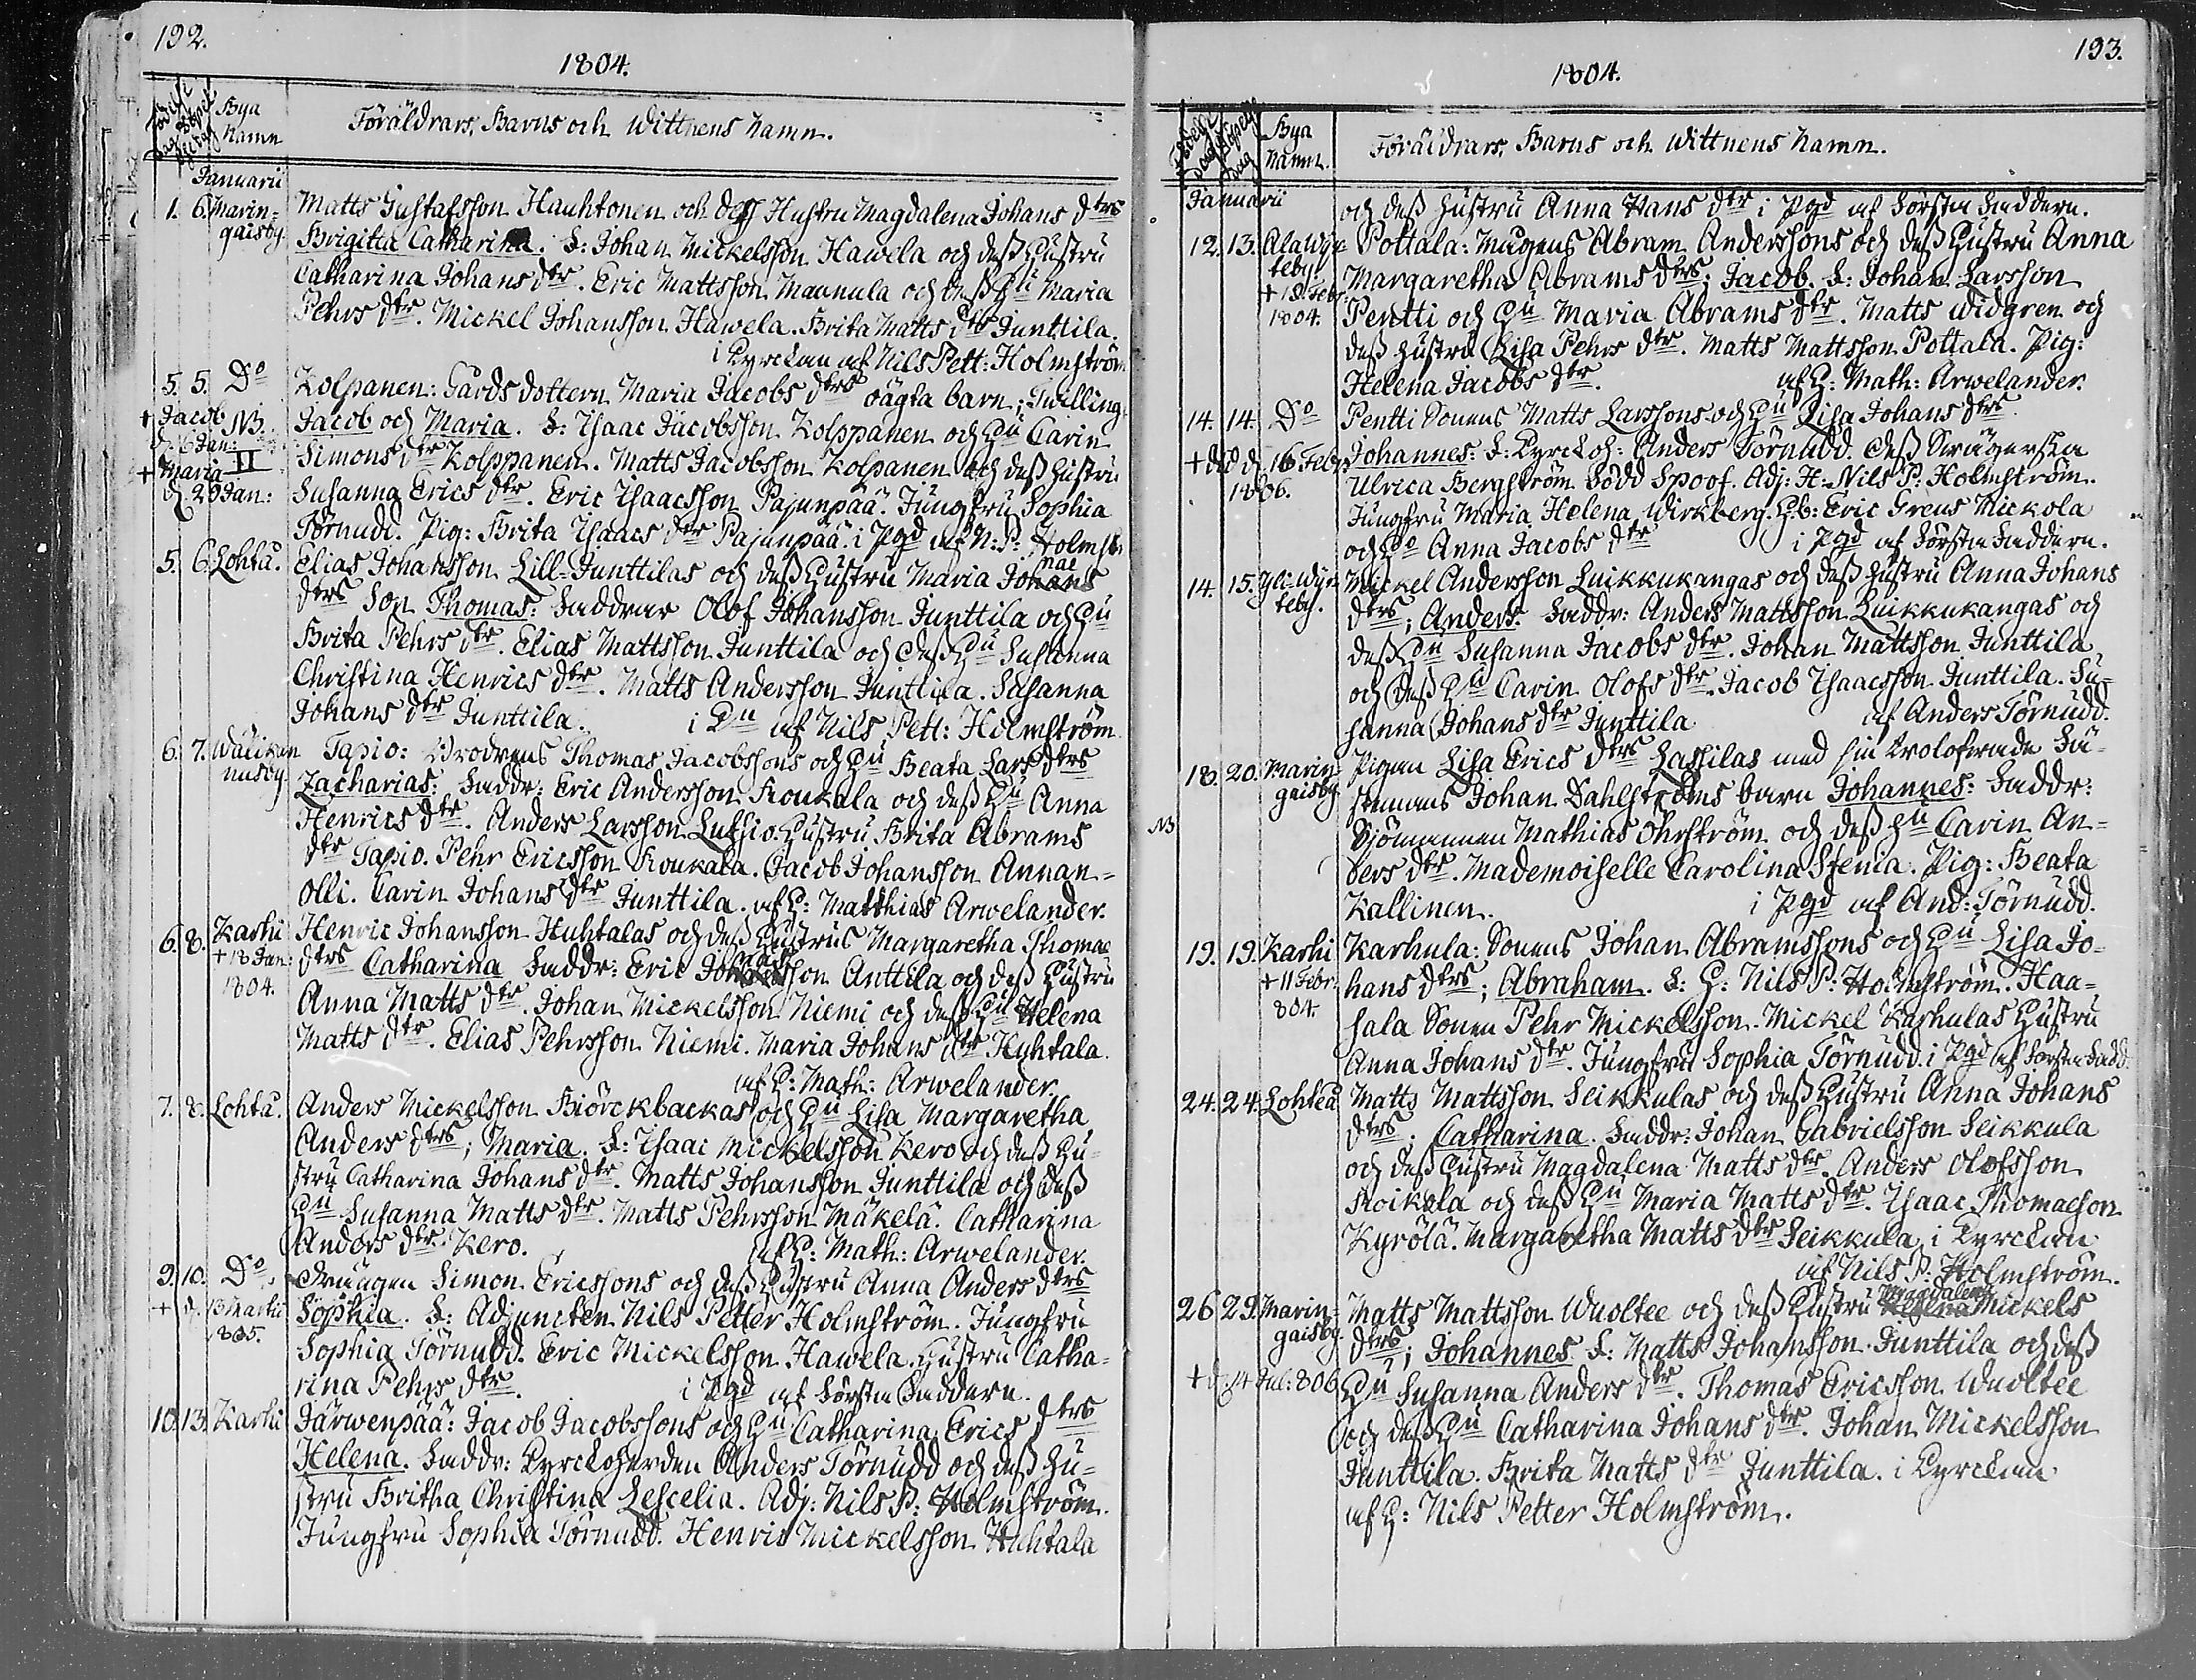 192.
1804.
Födelse dag Döpelsedag Bya Namn Föräldrars, Barns och Wittnens Namn.
Januarii
1. 6. Marin= Matts Gustafsson Hauhtonen och deß Hustru Magdalena Johans dtrs
gaisby. Brigitta Catharina. F: Johan Mickelsson Hawila och deß Hustru
Catharina Johans dtr. Eric Mattsson Mannula och deß Hu Maria
Pehrs dtr. Mickel Johansson Hawela. Brita Matts dtr Junttila.
i Kyrckan af Nils Pett: Holmström
5. 5. Do Kolpanen: Gårds dottern Maria Jacobs dtrs oägta barn; Twilling.
+ Jacob NB. Jacob och Maria. F: Isaac Jacobsson Kolppanen och Hu Carin
d. 16 Jan: II Simons dtr Kolppanen. Matts Jacobsson Kolpanen och deß Hustru
+ Maria
d. 20 Jan: Susanna Erics dtr. Eric Isaacsson Pajunpää. Jungfru Sophia
Törnudd. Pig: Brita Isaacs dtr Pajunpää. i Pgd af N: P: Holmstr
5. 6. Lohtå. Elias Johansson Lill-Junttilas och deß Hustru Maria Johans nae
dtrs Son Thomas: Faddrar Olof Johansson Junttila och Hu
Brita Pehrs dtr. Elias Mattsson Junttila och deß Hu Susanna
Christina Henrics dtr. Matts Andersson Junttila. Susanna
Johans dtr Junttila. i Kn af Nils Pett: Holmström
6. 7. Wälikan Tapio: Brodrens Thomas Jacobssons och Hu Beata Lars dtrs
nusby. Zacharias: Faddr: Eric Andersson Roukala och deß Hu Anna
Henrics dtr. Anders Larsson Luhio. Hustru Brita Abrams
dtr Tapio. Pehr Ericsson Roukala. Jacob Johansson Annan=
olli. Carin Johans dtr Junttila. af H: Matthias Arwelander.
6. 8. Karhi Henric Johansson Huhtalas och deß Hustrus Margaretha Thomae
+ 18 Jan: dtrs Catharina Faddr: Eric Johansson Anttila och deß Hustru
1804. Anna Matts dtr. Johan Mickelsson Niemi och deß Hu Helena
Matts dtr. Elias Pehrsson Niemi. Maria Johans dtr Huhtala.
af H: Math: Arwelander.
7. 8. Lohtå. Anders Mickelsson Biörckbackas och Hu Lisa Margaretha
Anders dtrs; Maria. F: Isaac Mickelsson Kero och deß Hu=
stru Catharina Johans dtr. Matts Johansson Junttila och deß
Hu Susanna Matts dtr. Matts Pehrsson Mäkelä. Catharina
Anders dtr Kero. af H: Math: Arwelander.
9. 10. Do. Drängen Simon Ericssons och deß Hustru Anna Anders dtrs
+ d. 13 Martii Sophia. F: Adjuncten Nils Petter Holmström. Jungfru
1805. Sophia Törnudd. Eric Mickelsson Hawela. Hustru Catha=
rina Pehrs dtr. i Pgd af Första Faddern.
10. 13. Karhi Järwenpää: Jacob Jacobssons och Hu Catharina Erics dtrs
Helena. Faddr: Kyrckoherden Anders Törnudd och deß Hu=
stru Britha Christina Lescelia. Adj: Nils P: Holmström.
Jungfru Sophia Törnudd. Henric Mickelsson Huhtala
193.
1804.
Födelse dag Döpelse dag Bya Namn. Föräldrars, Barns och Wittnens Namn.
Januarii och deß Hustru Anna Hans dtr i Pgd af Första Faddern.
12. 13. Alawije Pottala: Mugens Abram Anderssons och deß Hustru Anna
teby. Margaretha Abrams dtrs; Jacob. F: Johan Larsson
+ 18 Febr: 1804. Pentti och Hu Maria Abrams dtr. Matts Widgren och
deß Hustru Lisa Pehrs dtr. Matts Mattsson Pottala. Pig:
Helena Jacobs dtr. af H: Math: Arwelander.
14. 14. Do Pentti Sonens Matts Larssons och Hu Lisa Johans dtrs
+ d. 16 Febr Johannes: F: Kyrckoh: Anders Törnudd. Deß Swägerska
1806. Ulrica Bergström född Spoof. Adj: H: Nils P: Holmström.
Jungfru Maria Helena Wirkberg. Hb: Eric Greus Mickola
och Ho Anna Jacobs dtr i Pgd af Första Faddern.
14. 15. Yliwije Mickel Andersson Luikkukangas och deß Hustru Anna Johans
teby. dtrs; Anders. Faddr: Anders Mattsson Luikkukangas och
deß Hu Susanna Jacobs dtr. Johan Mattsson Junttila
och deß Hu Carin Olofs dtr. Jacob Isaacsson Junttila. Su=
sanna Johans dtr Junttila af Anders Törnudd.
18. 20. Marin= Pigan Lisa Erics dtrs Lassilas med sin trolofwade Fä=
gaisby stemans Johan Dahlströms barn Johannes: Faddr:
NB Sjömannen Mathias Öhrström och deß Hu Carin An=
ders dtr. Mademoiselle Carolina Stenia. Pig: Beata
Kallinen. i Pgd af And: Törnudd.
19. 19. Karhi Karhula: Sonens Johan Abramssons och Hu Lisa Jo=
+ 11 Febr. hans dtrs; Abraham. F: H: Nils P: Holmström. Haa=
804. sala Sonen Pehr Mickelsson. Mickel Karhulas Hustru
Anna Johans dtr. Jungfru Sophia Törnudd. i Pgd af Första Fadd.
24. 24. Lohteå Matts Mattsson Seikkulas och deß Hustru Anna Johans
dtrs; Catharina. Faddr: Johan Gabrielsson Seikkula
och deß Hustru Magdalena Matts dtr. Anders Olofsson
Roikola och deß Hu Maria Matts dtr. Isaac Thomaeson
Kyrölä. Margaretha Matts dtr Seikkula i Kyrckan
af Nils P: Holmström.
26 29. Marin= Matts Mattsson Wuoltee och deß Hustru Helena Magdalena Mickels
gaisby. dtrs; Johannes F: Matts Johansson Junttila och deß
+ d. 14 Jul: 806 Hu Susanna Anders dtr. Thomas Ericsson Wuoltee
och deß Hu Catharina Johans dtr. Johan Mickelsson
Junttila. Brita Matts dtr Junttila. i Kyrckan
af H: Nils Petter Holmström.